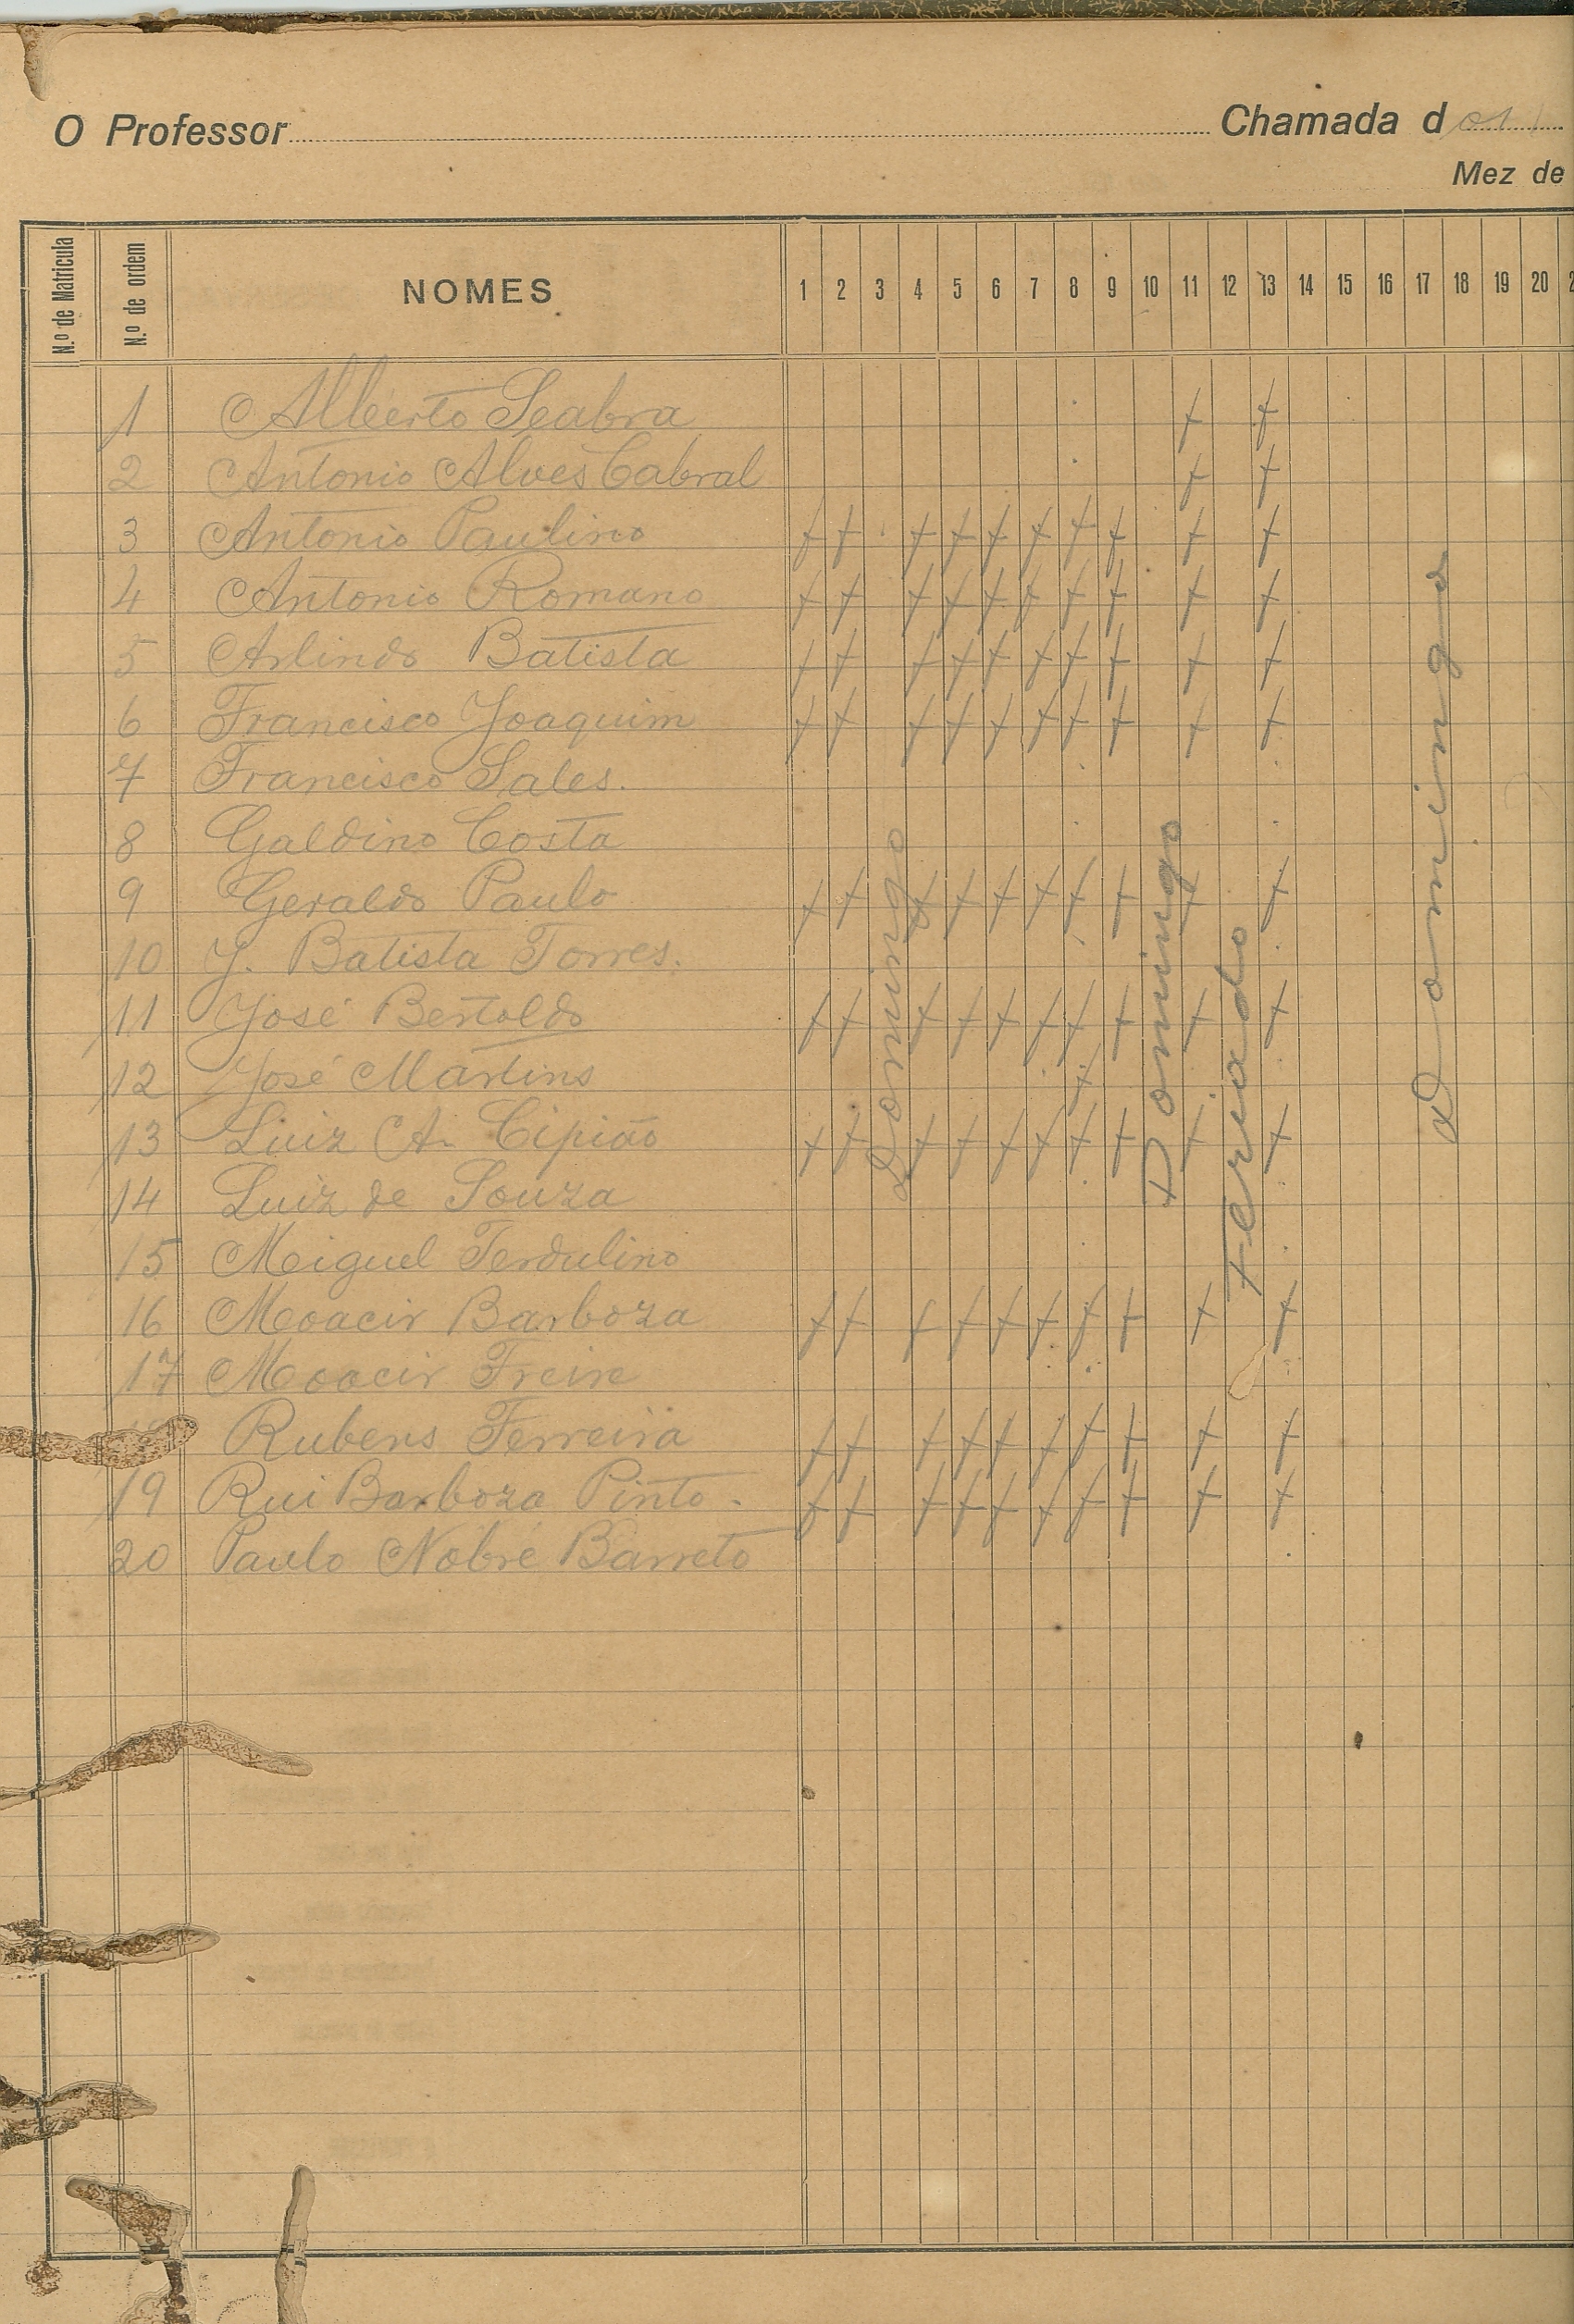 O Professor Chamada d
Mez de
N.º de Matricula N.º de ordem NOMES 1 2 3 4 5 6 7 8 9 10 11 12 13 14 15 16 17 18 19 20 2
1 Alberto Seabra f f
2 Antonio Alves Cabral f f
3 Antonio Paulino f f f f f f f f f f
4 Antonio Romano f f f f f f f f f f
5 Arlindo Batista f f f f f f f f f f
6 Francisco Joaquim f f f f f f f f f f
7 Francisco Sales.
8 Galdino Costa
9 Geraldo Paulo f f f f f f f f f f
10 J. Batista Torres.
11 José Bertoldo f f f f f f f f f f
12 José Martins f
13 Luiz A. Cipião f f f f f f f f f f
14 Luiz de Souza
15 Miguel Terdulino
16 Moacir Barboza f f f f f f f f f f
17 Moacir Freire
Rubens Ferreira f f f f f f f f f f
19 Rui Barboza Pinto. f f f f f f f f f f
20 Paulo Nobre Barreto
Domingo
Domingo
Feriado
Domingo